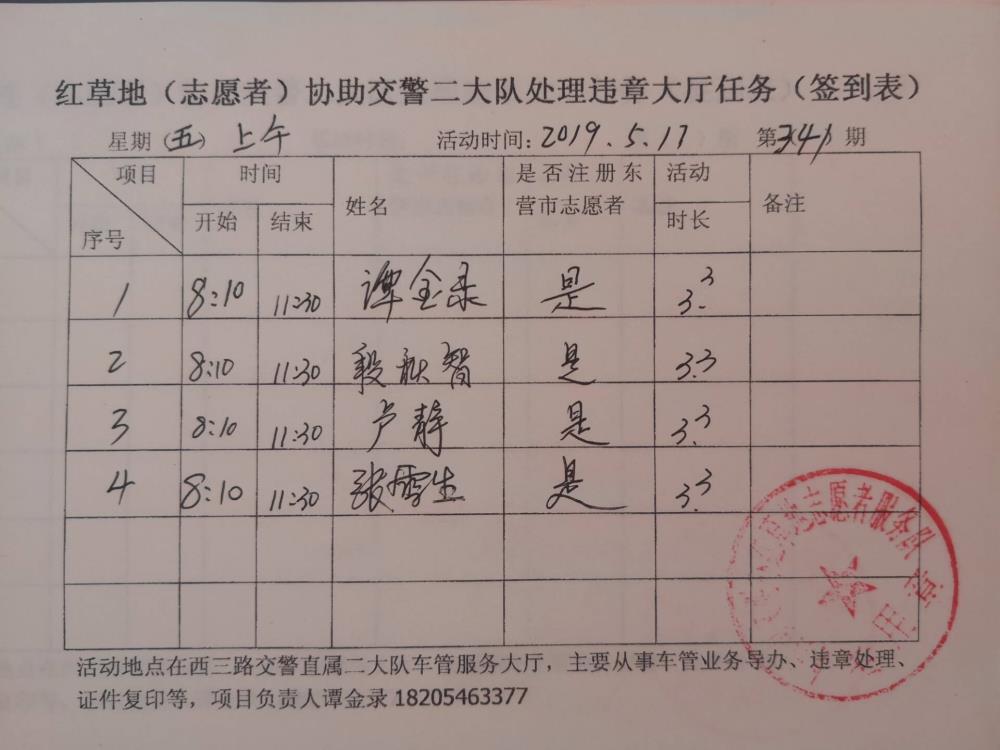 红草地（志愿者）协助交警二大队处理违章大厅任务（签到表）
星期（五）上午 活动时间：2019.5.17 第（341）期
项目 时间 姓名 是否注册东营市志愿者 活动时长 备注
序号 开始 结束
1 8:10 11:30 谭金录 是 3.3
2 8:10 11:30 段献智 是 3.3
3 8:10 11:30 卢静 是 3.3
4 8:10 11:30 张雪生 是 3.3
活动地点在西三路交警直属二大队车管服务大厅，主要从事车管业务导办、违章处理、
证件复印等，项目负责人谭金录 18205463377
草地志愿者服务队